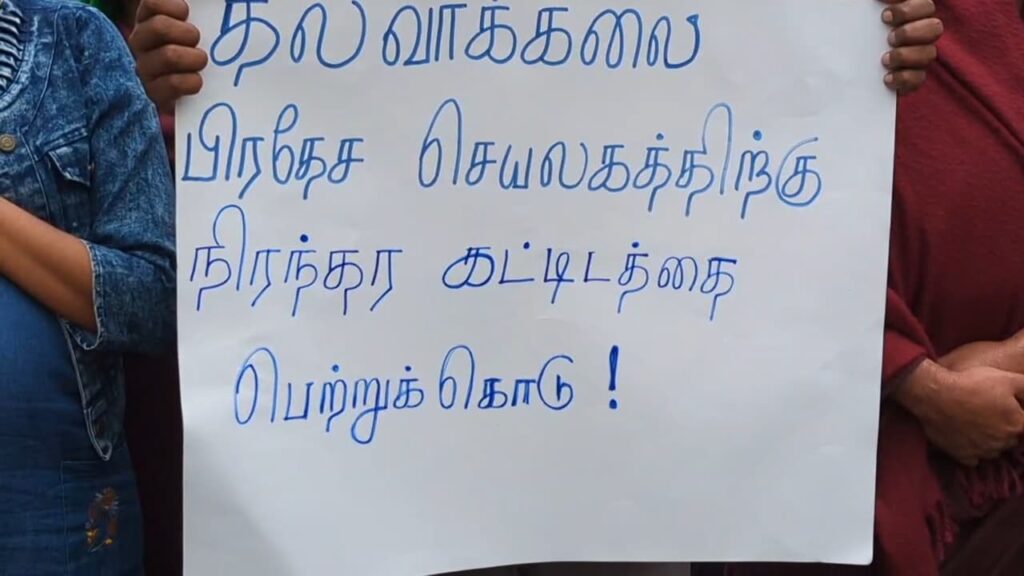 தலவாக்கலை
பிரதேச செயலகத்திற்கு
நிரந்தர கட்டிடத்தை
பெற்றுக் கொடு !